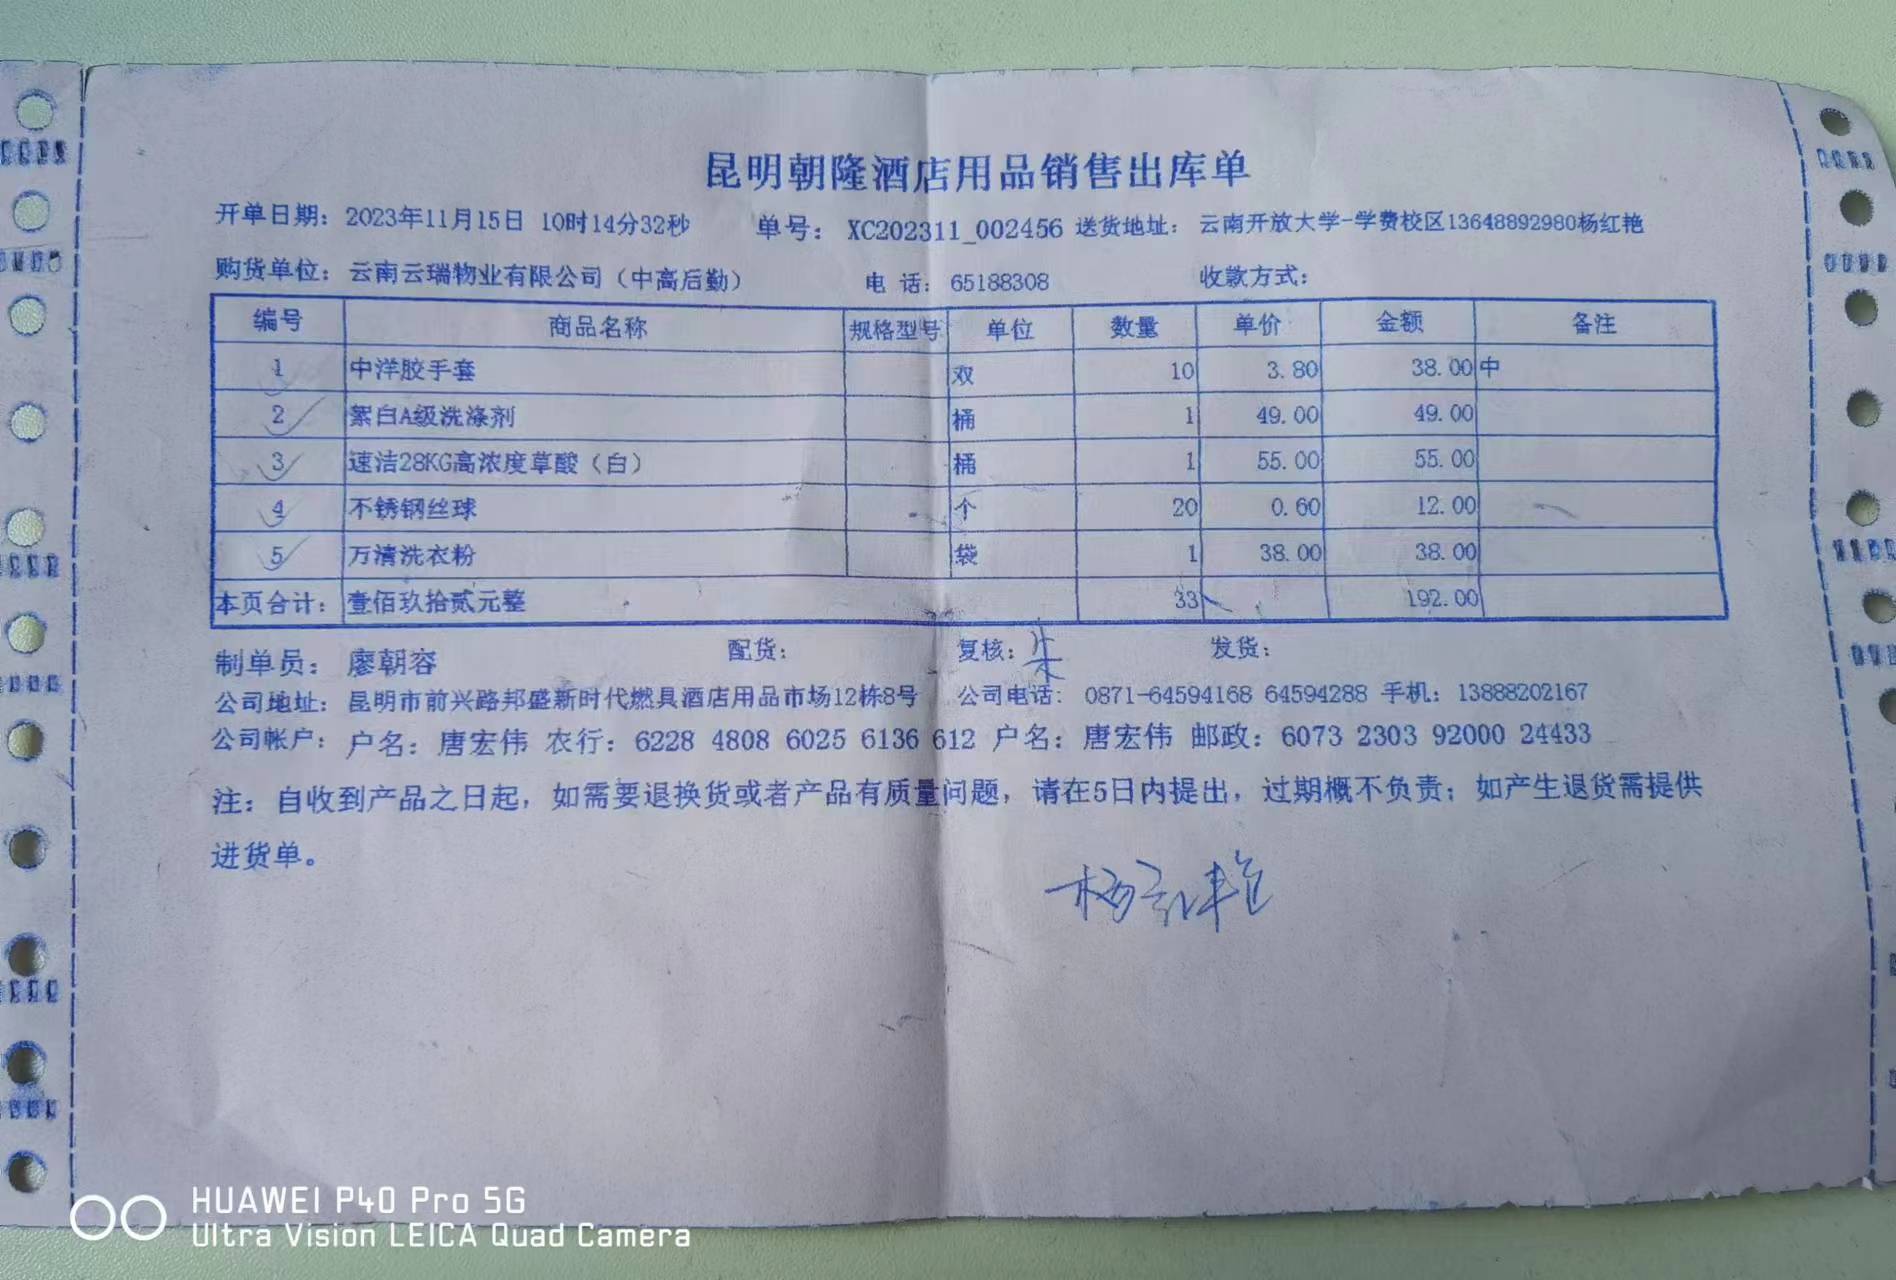 昆明朝隆酒店用品销售出库单
开单日期：2023年11月15日 10时14分32秒 单号：XC202311_002456 送货地址：云南开放大学-学费校区13648892980杨红艳
购货单位：云南云瑞物业有限公司（中高后勤） 电 话：65188308 收款方式：
编号 商品名称 规格型号 单位 数量 单价 金额 备注
1 中洋胶手套 双 10 3.80 38.00 中
2 絮白A级洗涤剂 桶 1 49.00 49.00
3 速洁28KG高浓度草酸（白） 桶 1 55.00 55.00
4 不锈钢丝球 个 20 0.60 12.00
5 万清洗衣粉 袋 1 38.00 38.00
本页合计：壹佰玖拾贰元整 33 192.00
制单员：廖朝容 配货： 复核： 发货：
公司地址：昆明市前兴路邦盛新时代燃具酒店用品市场12栋8号 公司电话：0871-64594168 64594288 手机：13888202167
公司帐户：户名：唐宏伟 农行：6228 4808 6025 6136 612 户名：唐宏伟 邮政：6073 2303 92000 24433
注：自收到产品之日起，如需要退换货或者产品有质量问题，请在5日内提出，过期概不负责；如产生退货需提供
进货单。
杨红艳
HUAWEI P40 Pro 5G
Ultra Vision LEICA Quad Camera